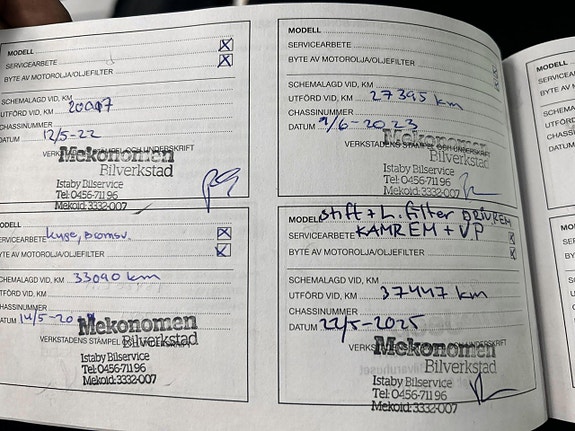 MODELL
SERVICEARBETE
BYTE AV MOTOROLJA/OLJEFILTER
SCHEMALAGD VID, KM
UTFÖRD VID, KM 20007
CHASSINUMMER
DATUM 12/5-22
VERKSTADENS STÄMPEL OCH UNDERSKRIFT
Mekonomen
Bilverkstad
Istaby Bilservice
Tel: 0456-711 96
Mekoid: 3332-007
MODELL
SERVICEARBETE
BYTE AV MOTOROLJA/OLJEFILTER
SCHEMALAGD VID, KM
UTFÖRD VID, KM 27395 km
CHASSINUMMER
DATUM 9/6-2023
VERKSTADENS STÄMPEL OCH UNDERSKRIFT
Mekonomen
Bilverkstad
Istaby Bilservice
Tel: 0456-711 96
Mekoid: 3332-007
MODELL
SERVICEARBETE
BYTE AV MOTOROLJA/OLJEFILTER
SCHEMALAGD VID, KM 33090 km
UTFÖRD VID, KM
CHASSINUMMER
DATUM 14/5-20
VERKSTADENS STÄMPEL
Mekonomen
Bilverkstad
Istaby Bilservice
Tel: 0456-711 96
Mekoid: 3332-007
MODELL stift + L. filter DRIVREM
SERVICEARBETE KAMREM + V.P
BYTE AV MOTOROLJA/OLJEFILTER
SCHEMALAGD VID, KM
UTFÖRD VID, KM 37447 km
CHASSINUMMER
DATUM 22/5-2025
Mekonomen
Bilverkstad
Istaby Bilservice
Tel: 0456-711 96
Mekoid: 3332-007